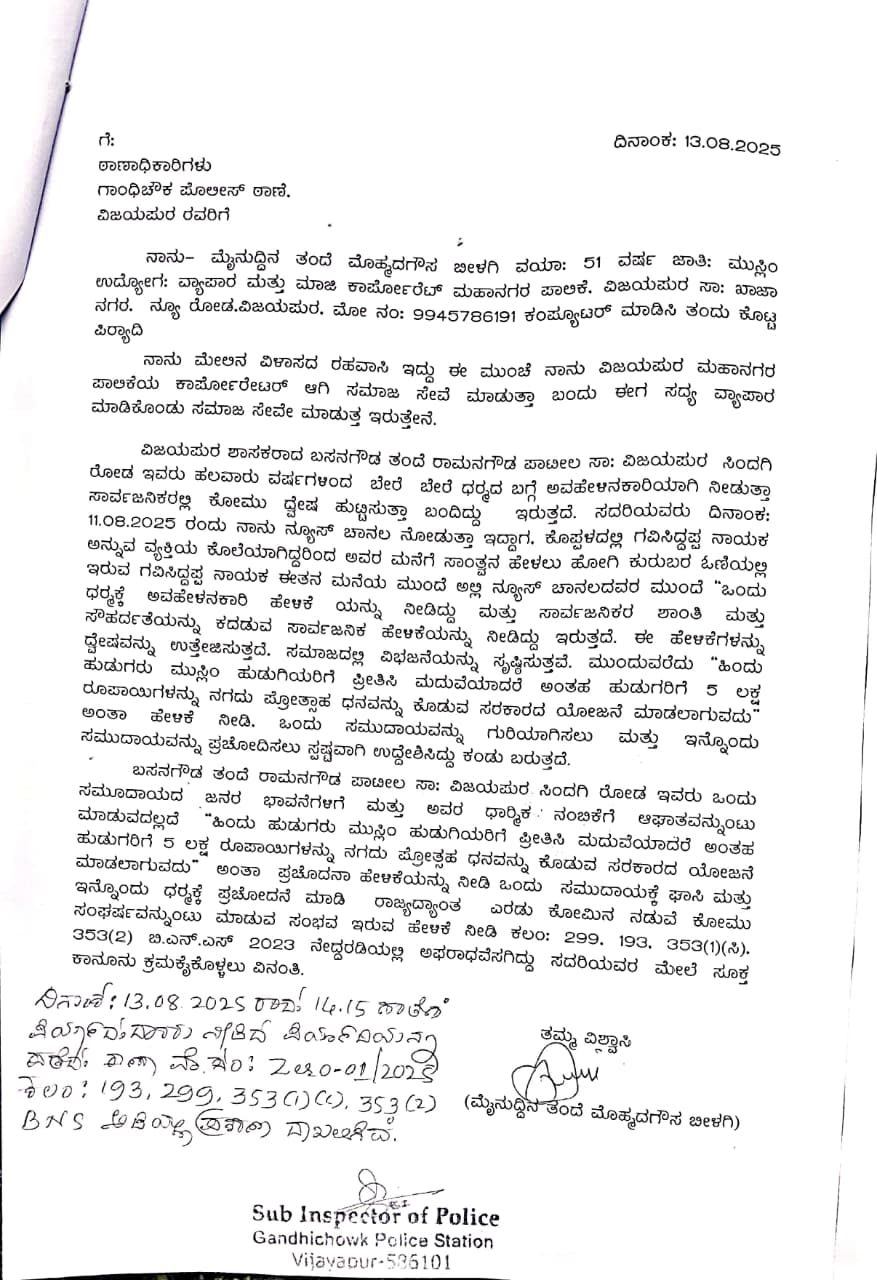 ಗೆ:
ದಿನಾಂಕ: 13.08.2025
ಠಾಣಾಧಿಕಾರಿಗಳು
ಗಾಂಧಿಚೌಕ ಪೊಲೀಸ್ ಠಾಣೆ.
ವಿಜಯಪುರ ರವರಿಗೆ
ನಾನು- ಮೈನುದ್ದಿನ ತಂದೆ ಮೊಹ್ಮದಗೌಸ ಬೀಳಗಿ ವಯಾ: 51 ವರ್ಷ ಜಾತಿ: ಮುಸ್ಲಿಂ
ಉದ್ಯೋಗ: ವ್ಯಾಪಾರ ಮತ್ತು ಮಾಜಿ ಕಾರ್ಪೋರೆಟ್ ಮಹಾನಗರ ಪಾಲಿಕೆ. ವಿಜಯಪುರ ಸಾ: ಖಾಜಾ
ನಗರ. ನ್ಯೂ ರೋಡ.ವಿಜಯಪುರ. ಮೋ ನಂ: 9945786191 ಕಂಪ್ಯೂಟರ್ ಮಾಡಿಸಿ ತಂದು ಕೊಟ್ಟ
ಪಿರ್‍ಯಾದಿ
ನಾನು ಮೇಲಿನ ವಿಳಾಸದ ರಹವಾಸಿ ಇದ್ದು ಈ ಮುಂಚೆ ನಾನು ವಿಜಯಪುರ ಮಹಾನಗರ
ಪಾಲಿಕೆಯ ಕಾರ್ಪೋರೇಟರ್ ಆಗಿ ಸಮಾಜ ಸೇವೆ ಮಾಡುತ್ತಾ ಬಂದು ಈಗ ಸದ್ಯ ವ್ಯಾಪಾರ
ಮಾಡಿಕೊಂಡು ಸಮಾಜ ಸೇವೇ ಮಾಡುತ್ತ ಇರುತ್ತೇನೆ.
ವಿಜಯಪುರ ಶಾಸಕರಾದ ಬಸನಗೌಡ ತಂದೆ ರಾಮನಗೌಡ ಪಾಟೀಲ ಸಾ: ವಿಜಯಪುರ ಸಿಂದಗಿ
ರೋಡ ಇವರು ಹಲವಾರು ವರ್ಷಗಳಿಂದ ಬೇರೆ ಬೇರೆ ಧರ್‍ಮದ ಬಗ್ಗೆ ಅವಹೇಳನಕಾರಿಯಾಗಿ ನೀಡುತ್ತಾ
ಸಾರ್ವಜನಿಕರಲ್ಲಿ ಕೋಮು ದ್ವೇಷ ಹುಟ್ಟಿಸುತ್ತಾ ಬಂದಿದ್ದು ಇರುತ್ತದೆ. ಸದರಿಯವರು ದಿನಾಂಕ:
11.08.2025 ರಂದು ನಾನು ನ್ಯೂಸ್ ಚಾನಲ ನೋಡುತ್ತಾ ಇದ್ದಾಗ, ಕೊಪ್ಪಳದಲ್ಲಿ ಗವಿಸಿದ್ದಪ್ಪ ನಾಯಕ
ಅನ್ನುವ ವ್ಯಕ್ತಿಯ ಕೊಲೆಯಾಗಿದ್ದರಿಂದ ಅವರ ಮನೆಗೆ ಸಾಂತ್ವನ ಹೇಳಲು ಹೋಗಿ ಕುರುಬರ ಓಣಿಯಲ್ಲಿ
ಇರುವ ಗವಿಸಿದ್ದಪ್ಪ ನಾಯಕ ಈತನ ಮನೆಯ ಮುಂದೆ ಅಲ್ಲಿ ನ್ಯೂಸ್ ಚಾನಲದವರ ಮುಂದೆ "ಒಂದು
ಧರ್‍ಮಕ್ಕೆ ಅವಹೇಳನಕಾರಿ ಹೇಳಿಕೆ ಯನ್ನು ನೀಡಿದ್ದು ಮತ್ತು ಸಾರ್ವಜನಿಕರ ಶಾಂತಿ ಮತ್ತು
ಸೌಹರ್ದತೆಯನ್ನು ಕದಡುವ ಸಾರ್ವಜನಿಕ ಹೇಳಿಕೆಯನ್ನು ನೀಡಿದ್ದು ಇರುತ್ತದೆ. ಈ ಹೇಳಿಕೆಗಳನ್ನು
ದ್ವೇಷವನ್ನು ಉತ್ತೇಜಿಸುತ್ತದೆ. ಸಮಾಜದಲ್ಲಿ ವಿಭಜನೆಯನ್ನು ಸೃಷ್ಠಿಸುತ್ತವೆ. ಮುಂದುವರೆದು "ಹಿಂದು
ಹುಡುಗರು ಮುಸ್ಲಿಂ ಹುಡುಗಿಯರಿಗೆ ಪ್ರೀತಿಸಿ ಮದುವೆಯಾದರೆ ಅಂತಹ ಹುಡುಗರಿಗೆ 5 ಲಕ್ಷ
ರೂಪಾಯಿಗಳನ್ನು ನಗದು ಪ್ರೋತ್ಸಾಹ ಧನವನ್ನು ಕೊಡುವ ಸರಕಾರದ ಯೋಜನೆ ಮಾಡಲಾಗುವದು"
ಅಂತಾ ಹೇಳಿಕೆ ನೀಡಿ. ಒಂದು ಸಮುದಾಯವನ್ನು ಗುರಿಯಾಗಿಸಲು ಮತ್ತು ಇನ್ನೊಂದು
ಸಮುದಾಯವನ್ನು ಪ್ರಚೋದಿಸಲು ಸ್ಪಷ್ಟವಾಗಿ ಉದ್ದೇಶಿಸಿದ್ದು ಕಂಡು ಬರುತ್ತದೆ.
ಬಸನಗೌಡ ತಂದೆ ರಾಮನಗೌಡ ಪಾಟೀಲ ಸಾ: ವಿಜಯಪುರ ಸಿಂದಗಿ ರೋಡ ಇವರು ಒಂದು
ಸಮೂದಾಯದ ಜನರ ಭಾವನೆಗಳಿಗೆ ಮತ್ತು ಅವರ ಧಾರ್‍ಮಿಕ ನಂಬಿಕೆಗೆ ಆಘಾತವನ್ನುಂಟು
ಮಾಡುವದಲ್ಲದೆ "ಹಿಂದು ಹುಡುಗರು ಮುಸ್ಲಿಂ ಹುಡುಗಿಯರಿಗೆ ಪ್ರೀತಿಸಿ ಮದುವೆಯಾದರೆ ಅಂತಹ
ಹುಡುಗರಿಗೆ 5 ಲಕ್ಷ ರೂಪಾಯಿಗಳನ್ನು ನಗದು ಪ್ರೋತ್ಸಹ ಧನವನ್ನು ಕೊಡುವ ಸರಕಾರದ ಯೋಜನೆ
ಮಾಡಲಾಗುವದು" ಅಂತಾ ಪ್ರಚೊದನಾ ಹೇಳಿಕೆಯನ್ನು ನೀಡಿ ಒಂದು ಸಮುದಾಯಕ್ಕೆ ಘಾಸಿ ಮತ್ತು
ಇನ್ನೊಂದು ಧರ್‍ಮಕ್ಕೆ ಪ್ರಚೋದನೆ ಮಾಡಿ ರಾಜ್ಯದ್ಯಾಂತ ಎರಡು ಕೋಮಿನ ನಡುವೆ ಕೋಮು
ಸಂಘರ್ಷವನ್ನುಂಟು ಮಾಡುವ ಸಂಭವ ಇರುವ ಹೇಳಿಕೆ ನೀಡಿ ಕಲಂ: 299, 193, 353(1)(ಸಿ).
353(2) ಬಿ.ಎನ್.ಎಸ್ 2023 ನೇದ್ದರಡಿಯಲ್ಲಿ ಅಫರಾಧವೆಸಗಿದ್ದು ಸದರಿಯವರ ಮೇಲೆ ಸೂಕ್ತ
ಕಾನೂನು ಕ್ರಮಕೈಕೊಳ್ಳಲು ವಿನಂತಿ.
ದಿನಾಂಕ: 13.08.2025 14.15
01/2025
ಕಲಂ: 193, 299, 353(1)(c), 353(2)
BNS
ತಮ್ಮ ವಿಶ್ವಾಸಿ
(ಮೈನುದ್ದಿನ ತಂದೆ ಮೊಹ್ಮದಗೌಸ ಬೀಳಗಿ)
Sub Inspector of Police
Gandhichowk Police Station
Vijayapur-586101